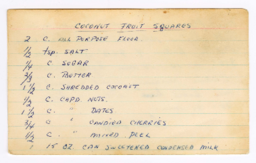 COCONUT FRUIT SQUARES
2 C. ALL PURPOSE FLOUR
1/2 tsp. SALT
1/4 C SUGAR
3/4 C. BUTTER
1 1/2 C. SHREDDED COCONUT
1/2 C. CHPD. NUTS.
1/2 C. " DATES
3/4 C " CANDIED CHERRIES
1/2 C. " MIXED PEEL
1 15 OZ. CAN SWEETENED CONDENSED MILK